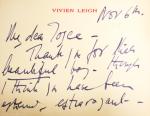 VIVIEN LEIGH
Nov 6th.
My dear Joyce -
Thank you for this
beautiful bag - though
I think you have been
extravagant -